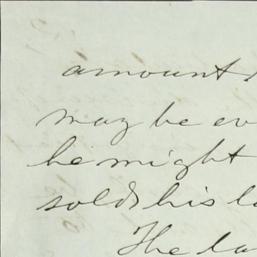 amount
may be ev
he might
solds his la
The la